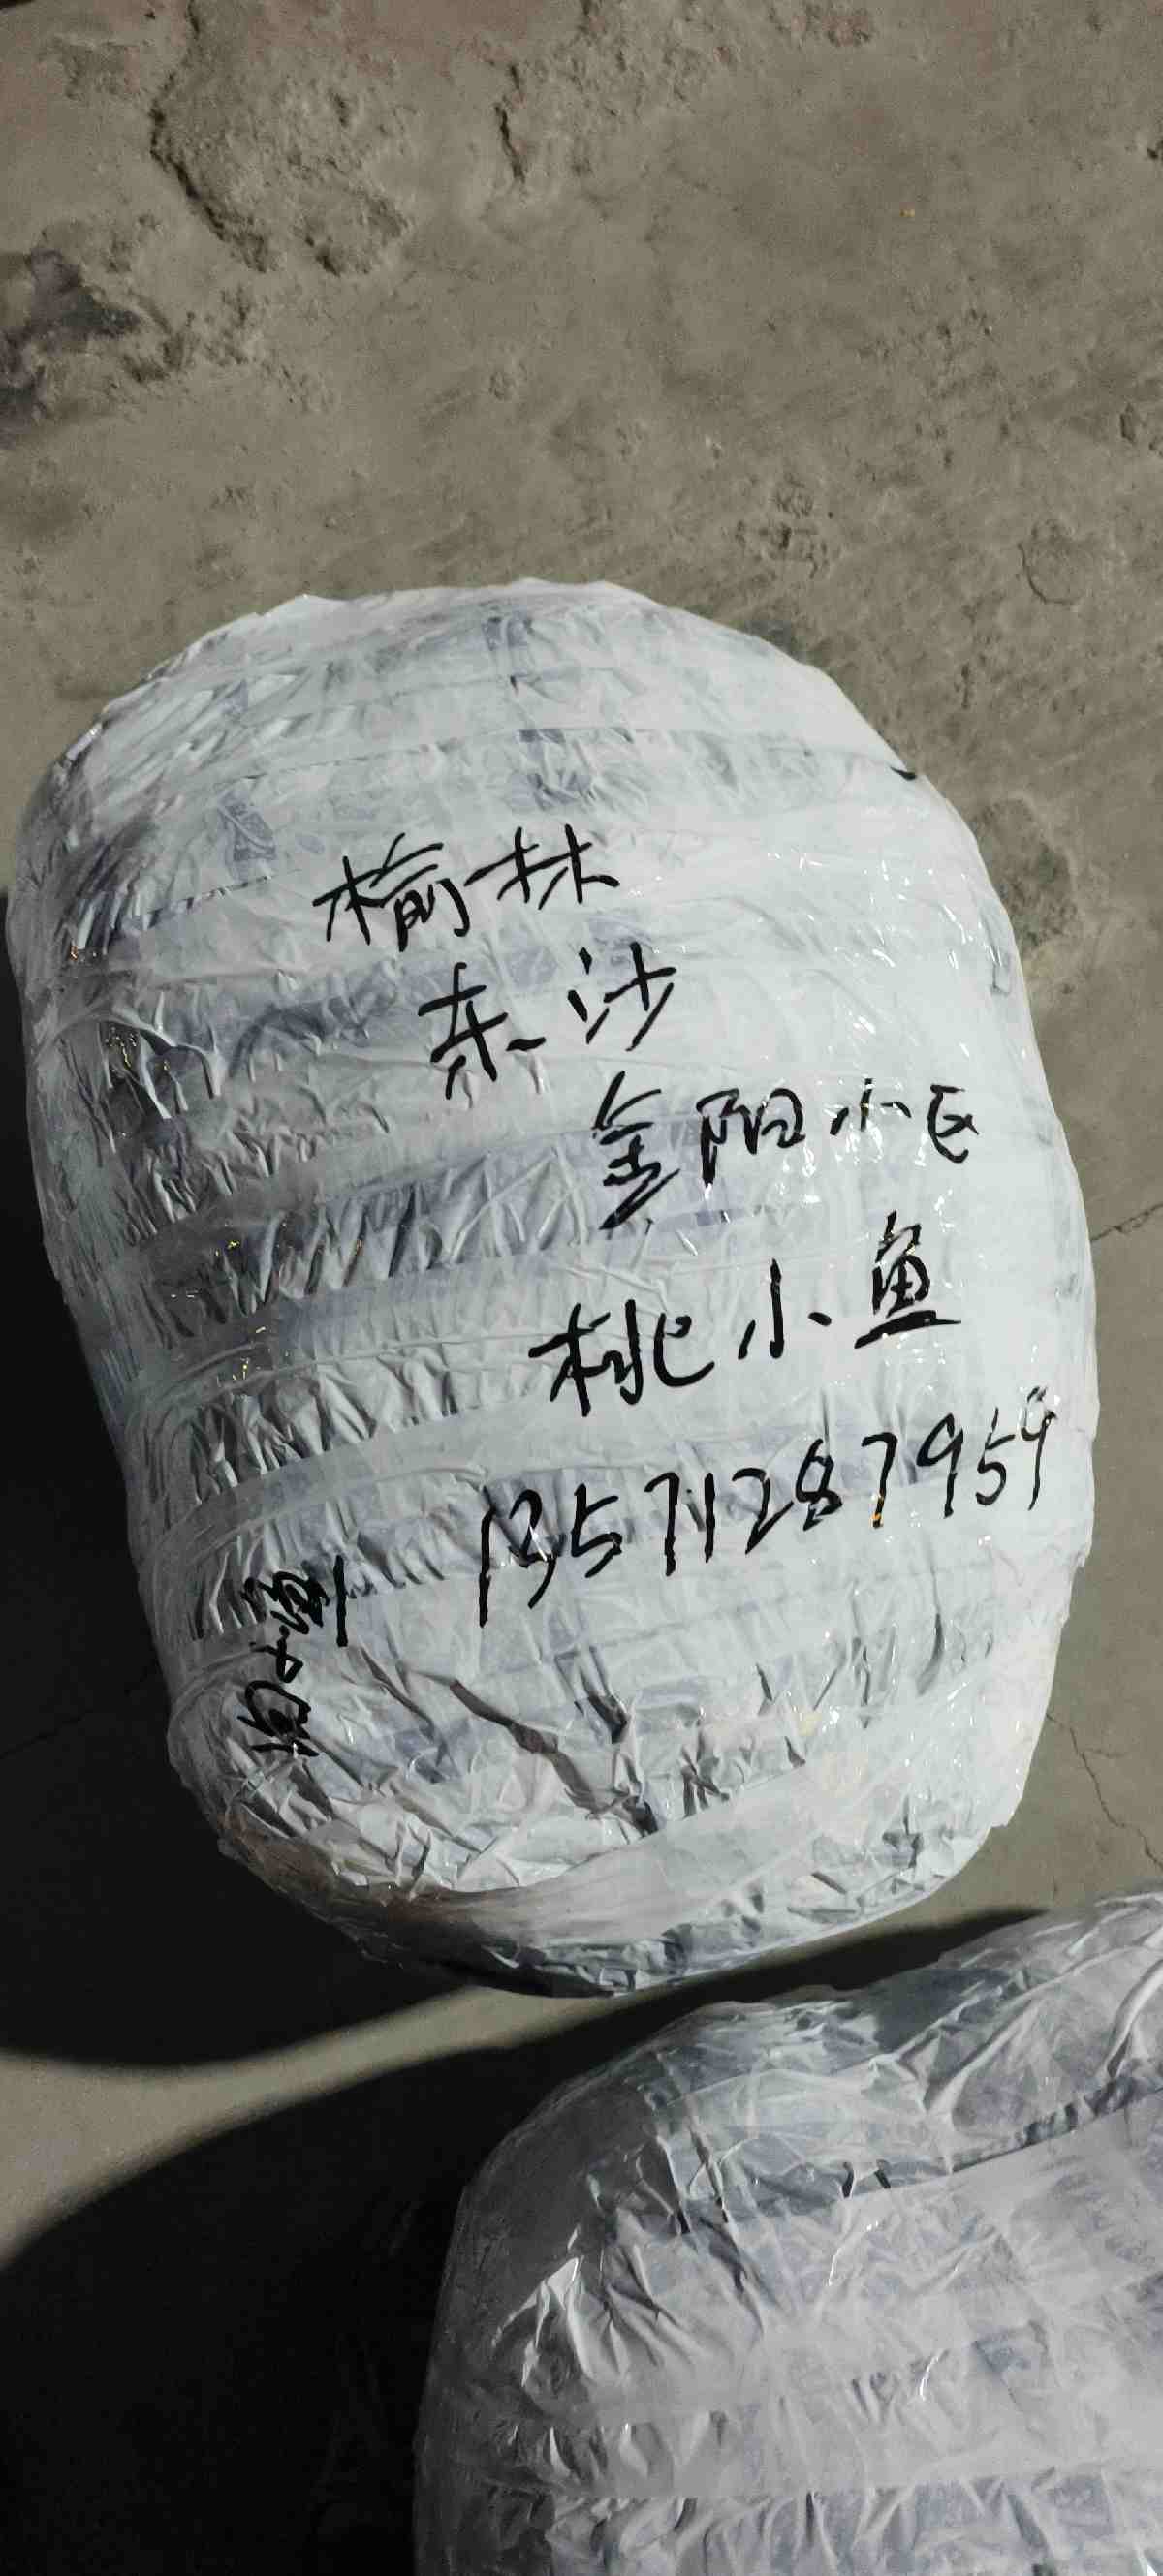 榆林
东沙
金阳小区
桃小鱼
13571287959